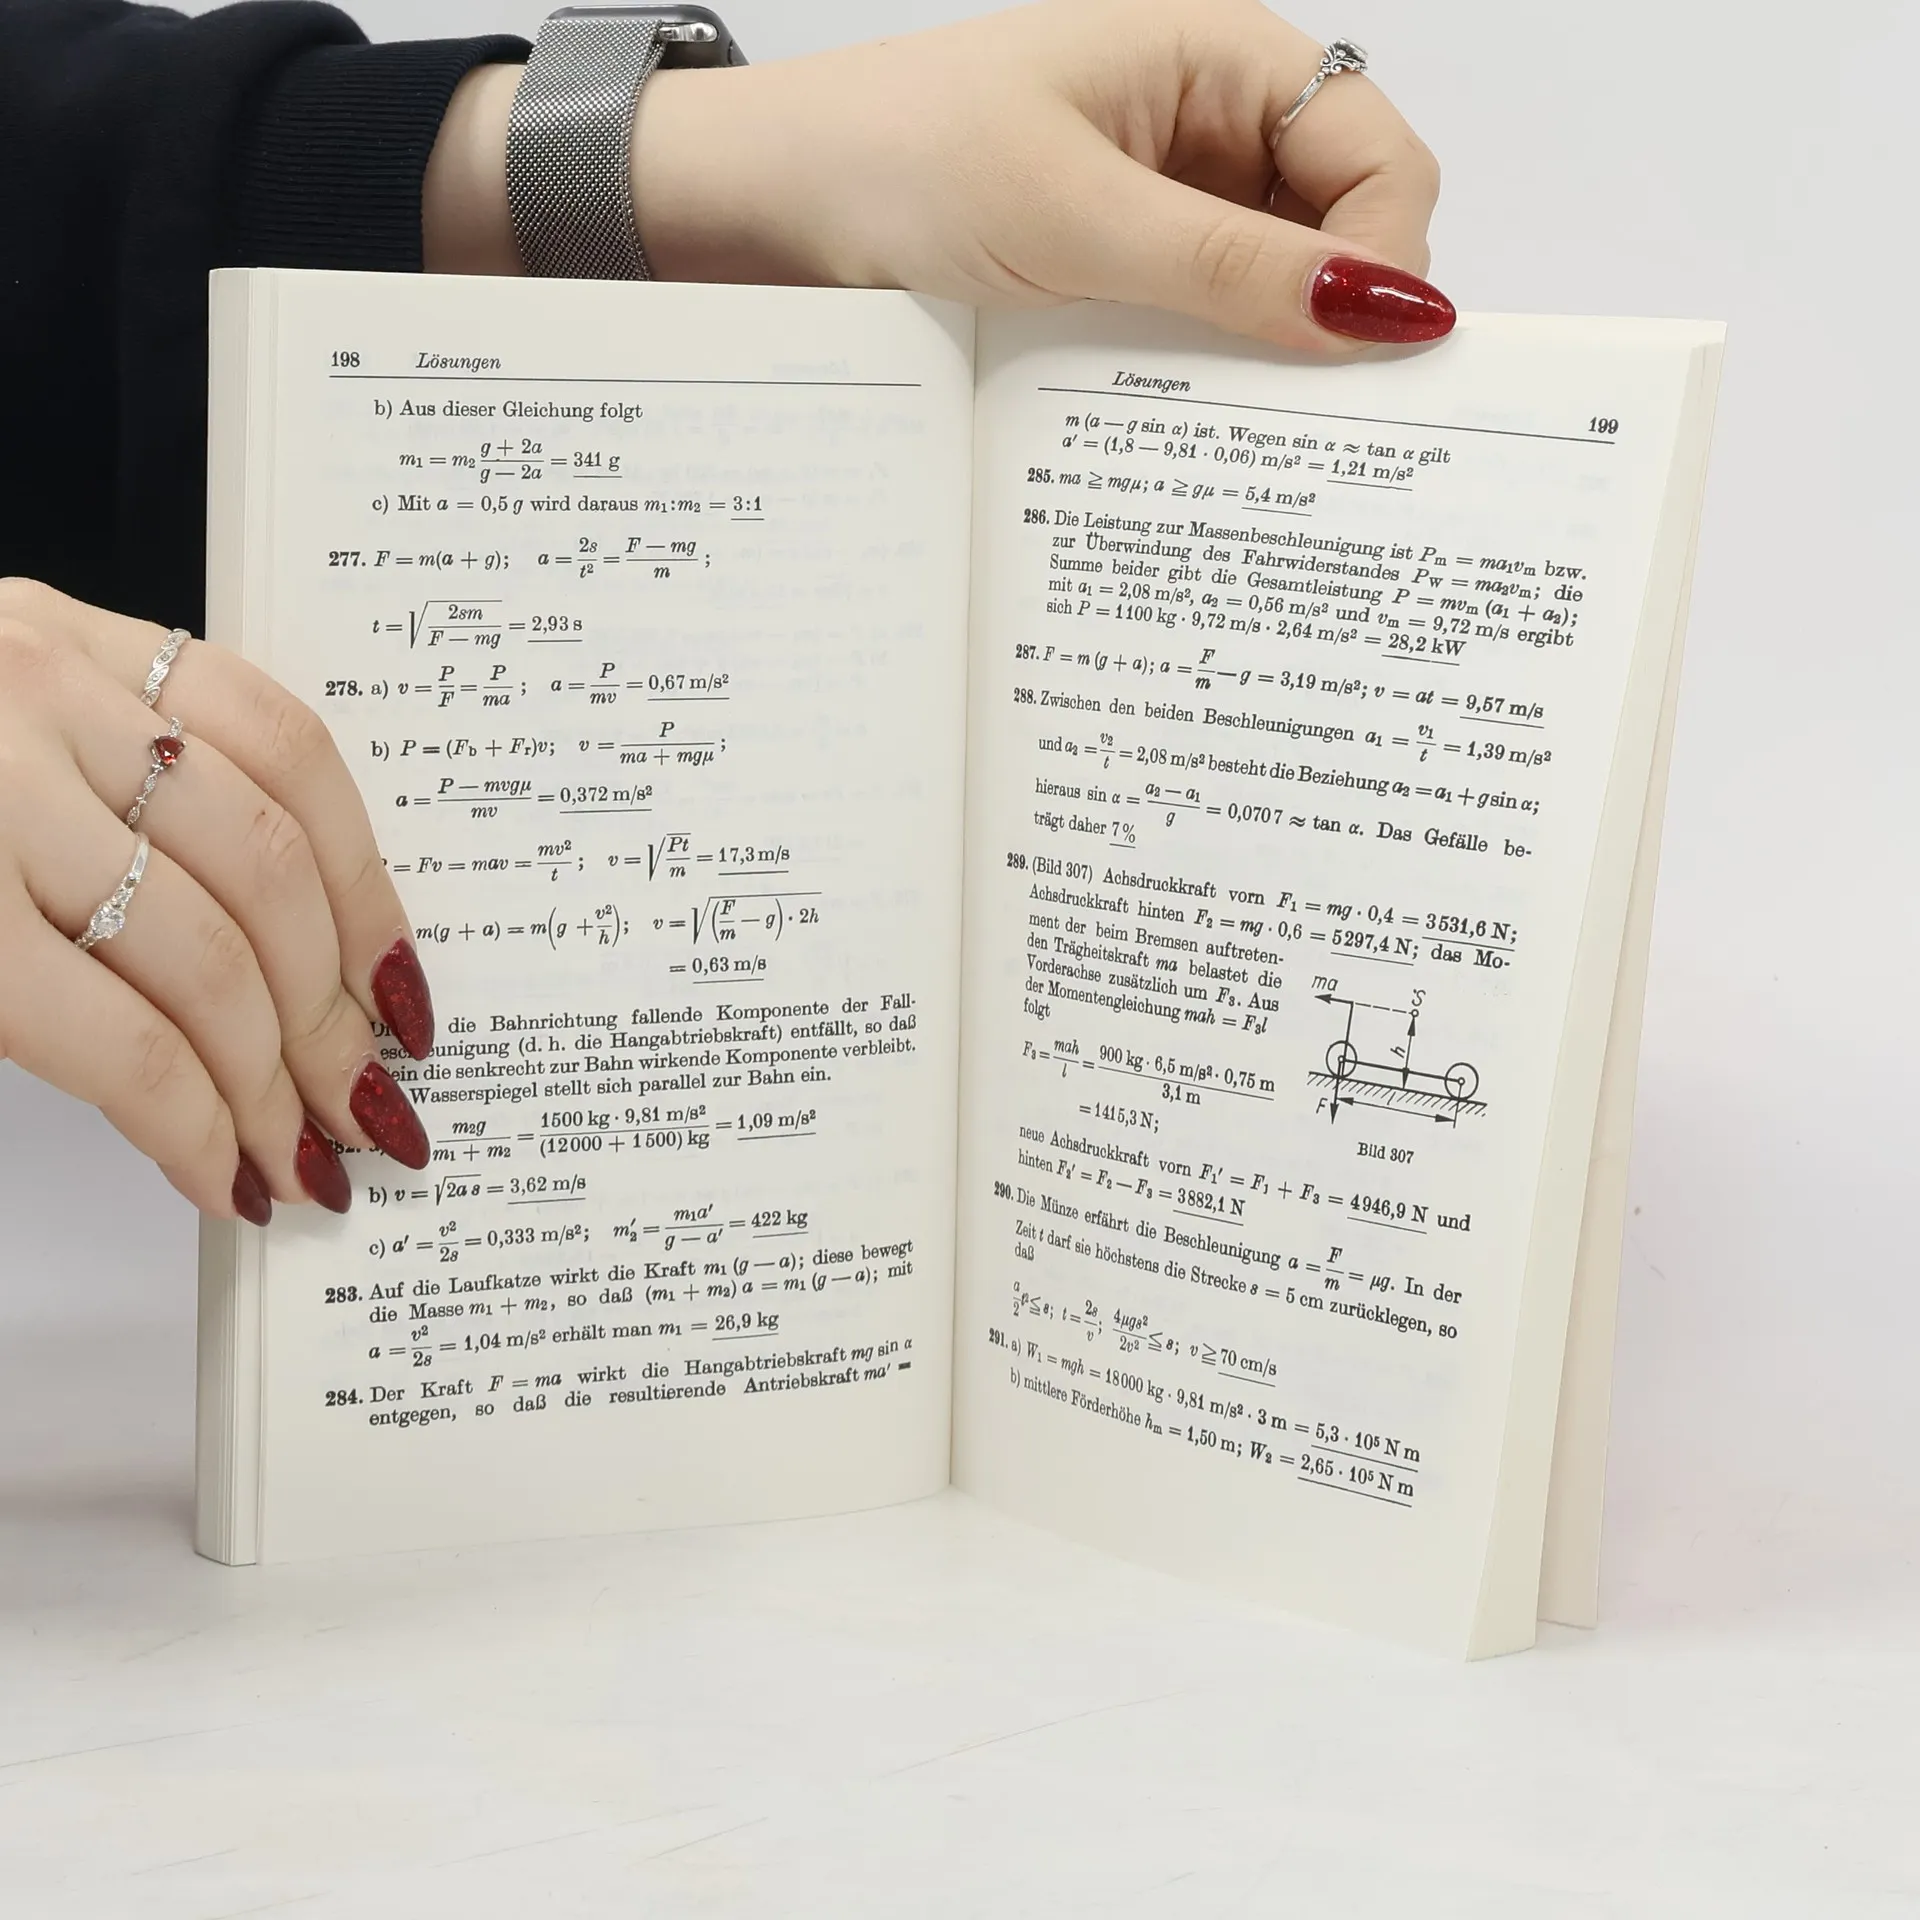 198 Lösungen
b) Aus dieser Gleichung folgt
m₁ = m₂ (g + 2a)/(g — 2a) = 341 g
c) Mit a = 0,5 g wird daraus m₁:m₂ = 3:1
277. F = m(a + g); a = 2s/t² = (F — mg)/m ;
t = √(2sm/(F — mg)) = 2,93 s
278. a) v = P/F = P/ma ; a = P/mv = 0,67 m/s²
b) P = (F_b + F_r)v; v = P/(ma + mgμ) ;
a = (P — mvgμ)/mv = 0,372 m/s²
= Fv = mav = mv²/t ; v = √(Pt/m) = 17,3 m/s
m(g + a) = m(g + v²/h); v = √((F/m — g) · 2h)
= 0,63 m/s
die Bahnrichtung fallende Komponente der Fall-
eunigung (d. h. die Hangabtriebskraft) entfällt, so daß
ein die senkrecht zur Bahn wirkende Komponente verbleibt.
Wasserspiegel stellt sich parallel zur Bahn ein.
m₂g/(m₁ + m₂) = 1500 kg · 9,81 m/s²/(12000 + 1500) kg = 1,09 m/s²
b) v = √(2a s) = 3,62 m/s
c) a′ = v²/2s = 0,333 m/s²; m₂′ = m₁a′/(g — a′) = 422 kg
283. Auf die Laufkatze wirkt die Kraft m₁ (g — a); diese bewegt
die Masse m₁ + m₂, so daß (m₁ + m₂) a = m₁ (g — a); mit
a = v²/2s = 1,04 m/s² erhält man m₁ = 26,9 kg
284. Der Kraft F = ma wirkt die Hangabtriebskraft mg sin α
entgegen, so daß die resultierende Antriebskraft ma′ =
Lösungen 199
m (a — g sin α) ist. Wegen sin α ≈ tan α gilt
a′ = (1,8 — 9,81 · 0,06) m/s² = 1,21 m/s²
285. ma ≧ mgμ; a ≧ gμ = 5,4 m/s²
286. Die Leistung zur Massenbeschleunigung ist P_m = ma₁v_m bzw.
zur Überwindung des Fahrwiderstandes P_W = ma₂v_m; die
Summe beider gibt die Gesamtleistung P = mv_m (a₁ + a₂);
mit a₁ = 2,08 m/s², a₂ = 0,56 m/s² und v_m = 9,72 m/s ergibt
sich P = 1100 kg · 9,72 m/s · 2,64 m/s² = 28,2 kW
287. F = m (g + a); a = F/m — g = 3,19 m/s²; v = at = 9,57 m/s
288. Zwischen den beiden Beschleunigungen a₁ = v₁/t = 1,39 m/s²
und a₂ = v₂/t = 2,08 m/s² besteht die Beziehung a₂ = a₁ + g sin α;
hieraus sin α = (a₂ — a₁)/g = 0,0707 ≈ tan α. Das Gefälle be-
trägt daher 7 %
289. (Bild 307) Achsdruckkraft vorn F₁ = mg · 0,4 = 3531,6 N;
Achsdruckkraft hinten F₂ = mg · 0,6 = 5297,4 N; das Mo-
ment der beim Bremsen auftreten-
den Trägheitskraft ma belastet die
Vorderachse zusätzlich um F₃. Aus
der Momentengleichung mah = F₃l
folgt
F₃ = mah/l = 900 kg · 6,5 m/s² · 0,75 m/3,1 m
= 1415,3 N;
ma S
h
F l
Bild 307
neue Achsdruckkraft vorn F₁′ = F₁ + F₃ = 4946,9 N und
hinten F₂′ = F₂ — F₃ = 3882,1 N
290. Die Münze erfährt die Beschleunigung a = F/m = μg. In der
Zeit t darf sie höchstens die Strecke s = 5 cm zurücklegen, so
daß
a/2 t² ≦ s; t = 2s/v; 4μgs²/2v² ≦ s; v ≧ 70 cm/s
291. a) W₁ = mgh = 18000 kg · 9,81 m/s² · 3 m = 5,3 · 10⁵ N m
b) mittlere Förderhöhe h_m = 1,50 m; W₂ = 2,65 · 10⁵ N m